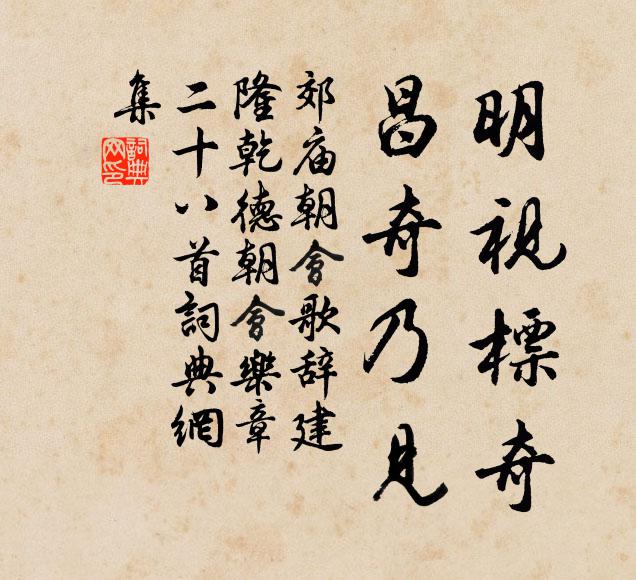 明视標奇
昌奇乃見
郊庙朝會歌辞建
隆乾德朝會樂章
二十八首詞典網
集
詞典
网印